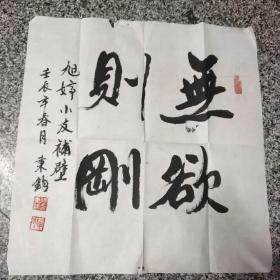 無欲
則剛
旭婷小友補壁
壬辰年春月秉鈞